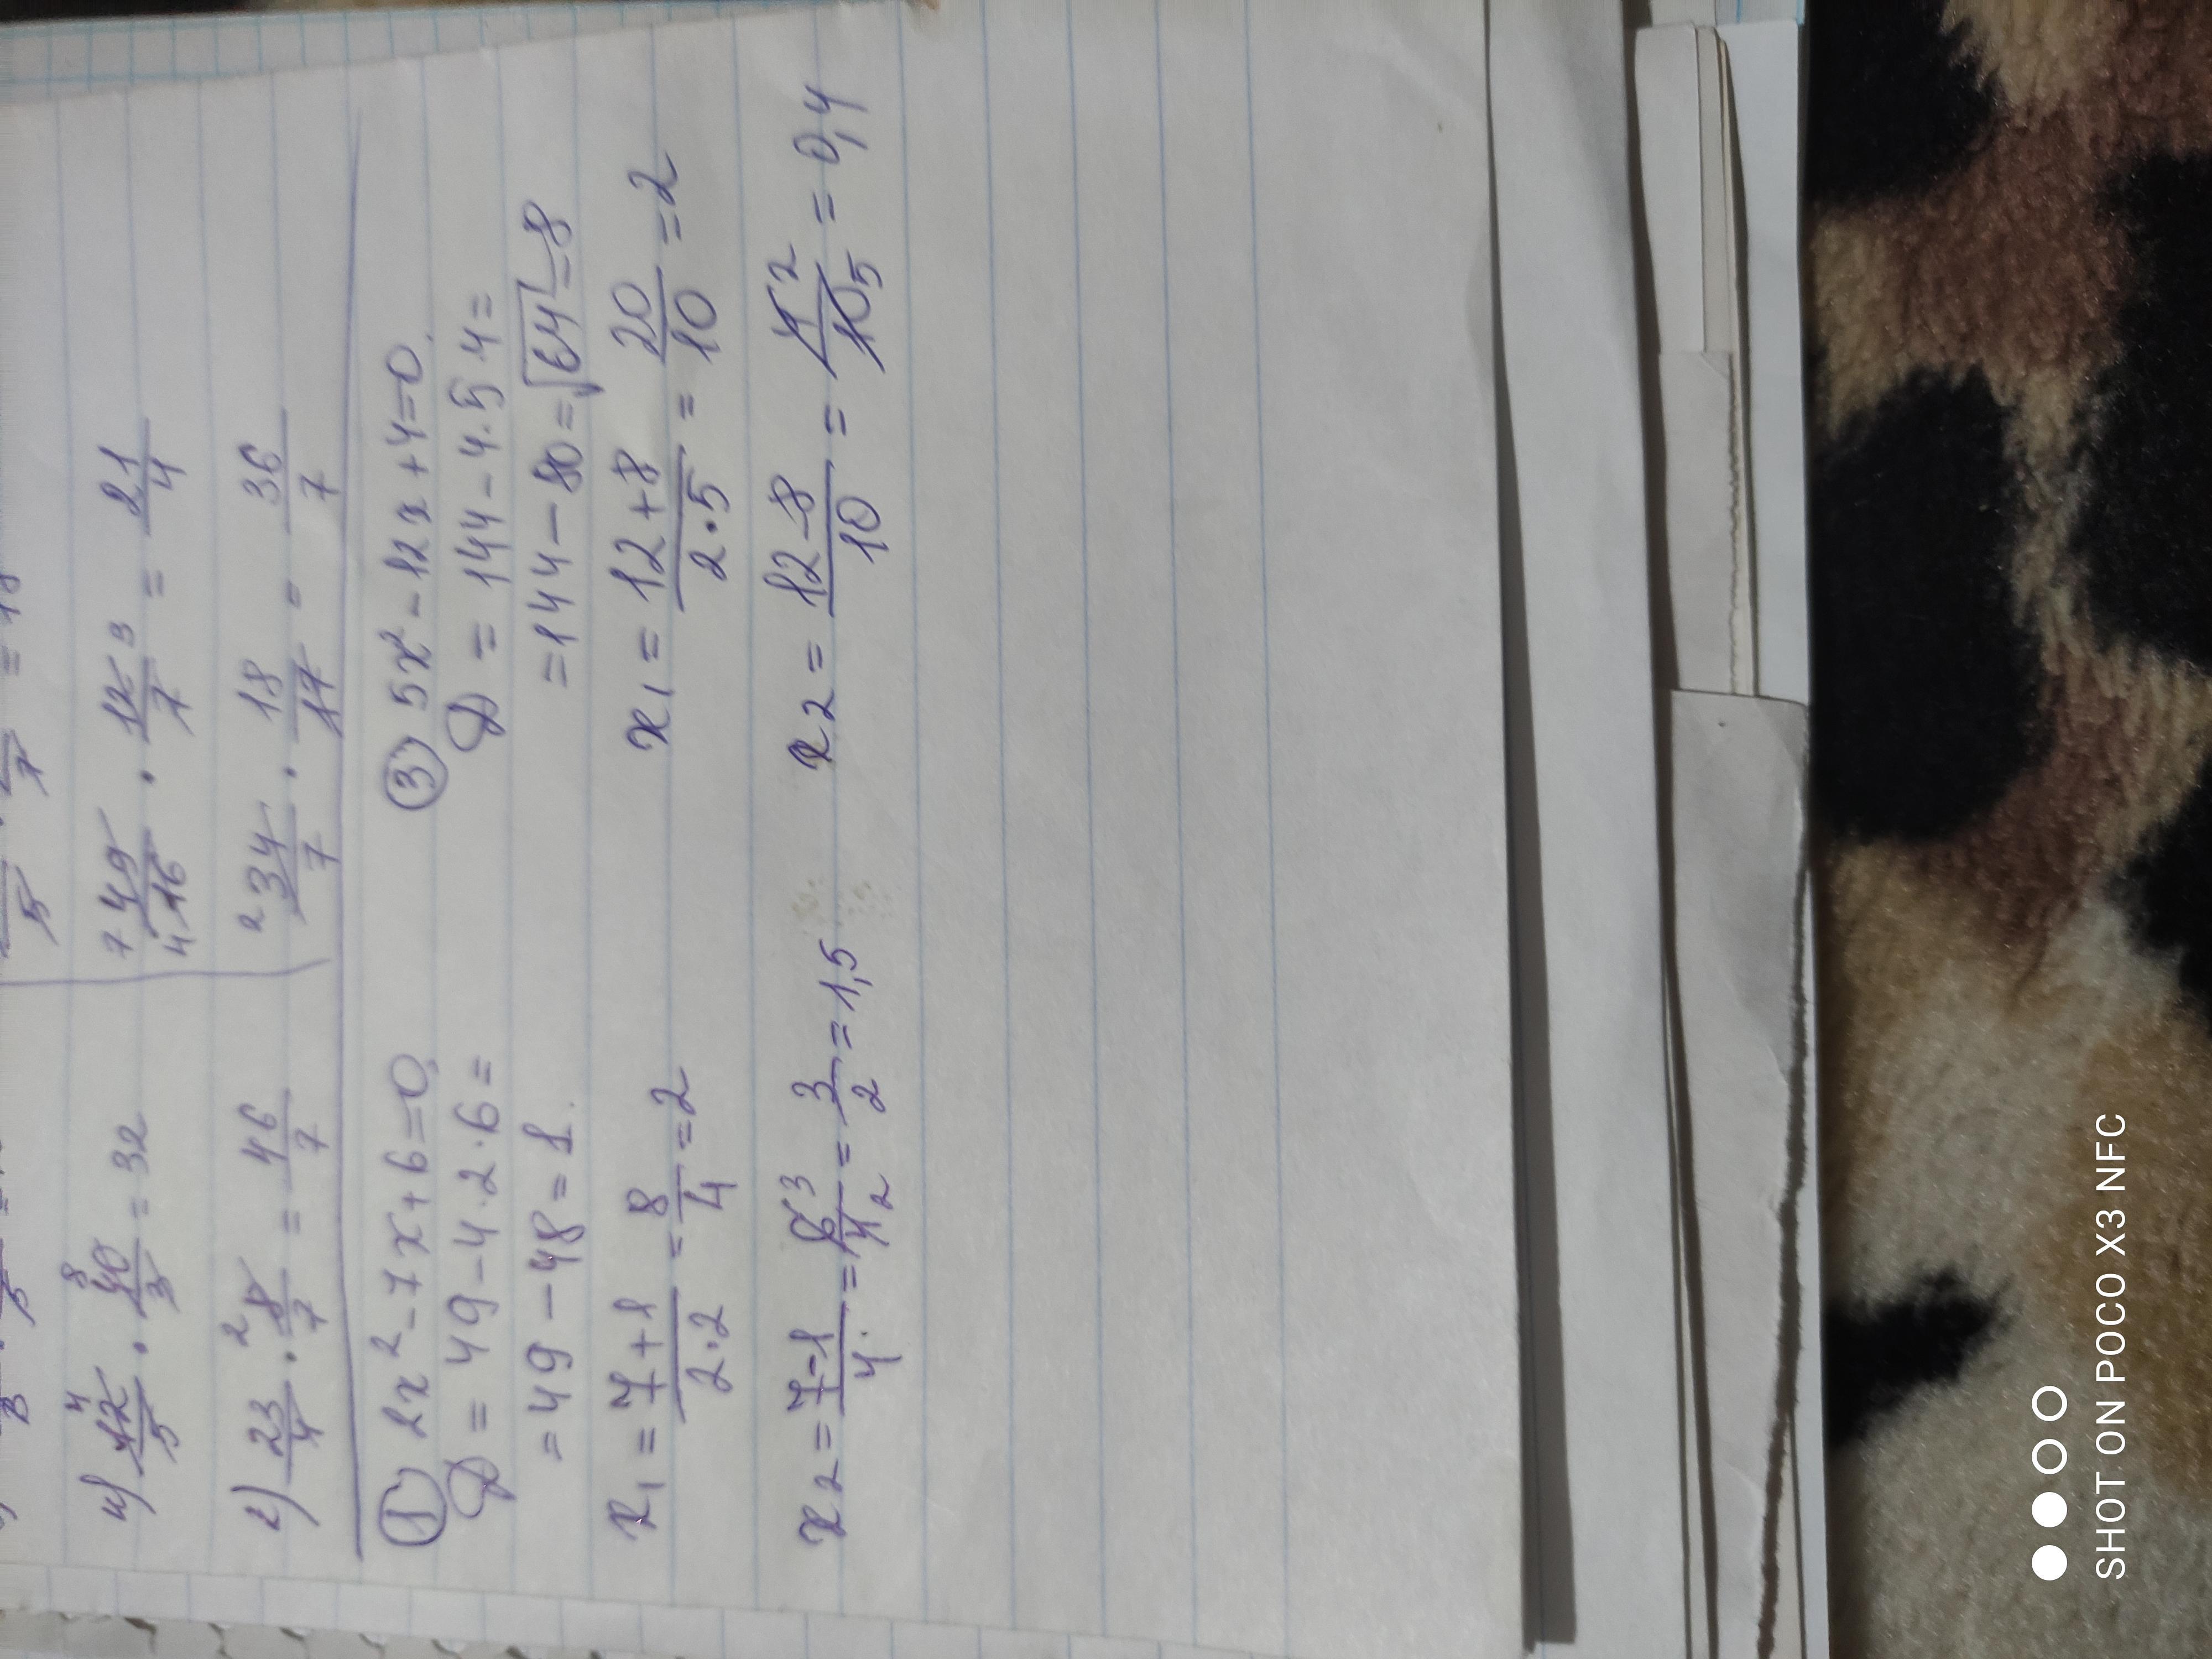 и) 12/5 4 · 40/3 8 = 32
7 49/16 4 · 12/7 3 = 21/4
г) 23/4 · 8/7 2 = 46/7
2 34/7 · 18/17 = 36/7
① 2x² - 7x + 6 = 0
D = 49 - 4 · 2 · 6 =
= 49 - 48 = 1.
x₁ = (7+1)/(2·2) = 8/4 = 2
x₂ = (7-1)/4 = 6/4 3 2 = 3/2 = 1,5
③ 5x² - 12x + 4 = 0
D = 144 - 4 · 5 · 4 =
= 144 - 80 = √64 = 8
x₁ = (12+8)/(2·5) = 20/10 = 2
x₂ = (12-8)/10 = 4/10 2 5 = 0,4
SHOT ON POCO X3 NFC